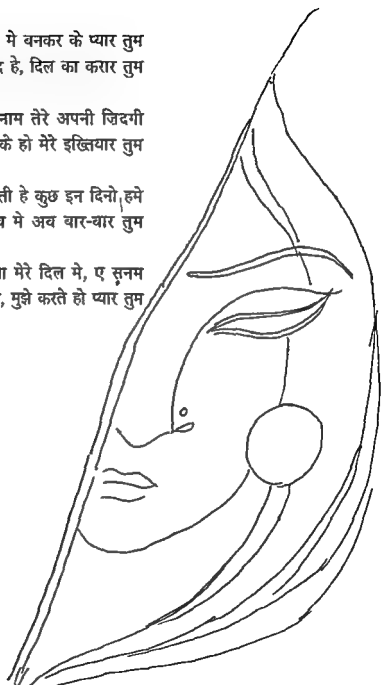 मे बनकर के प्यार तुम
हे, दिल का करार तुम
नाम तेरे अपनी ज़िदगी
के हो मेरे इख्तियार तुम
ती हे कुछ इन दिनो, हमे
मे अव वार-वार तुम
मेरे दिल मे, ए सनम
मुझे करते हो प्यार तुम